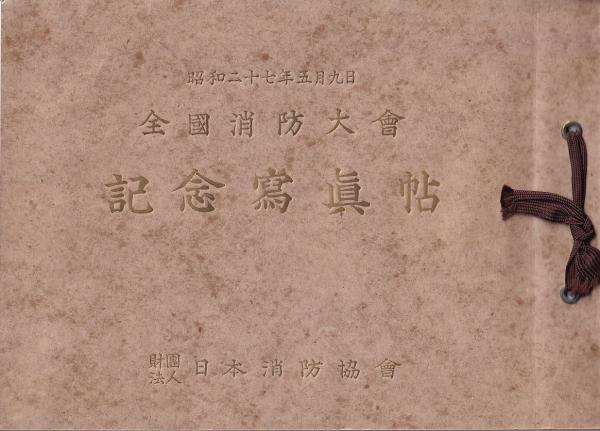 昭和二十七年五月九日
全國消防大會
記念寫眞帖
財團法人 日本消防協會